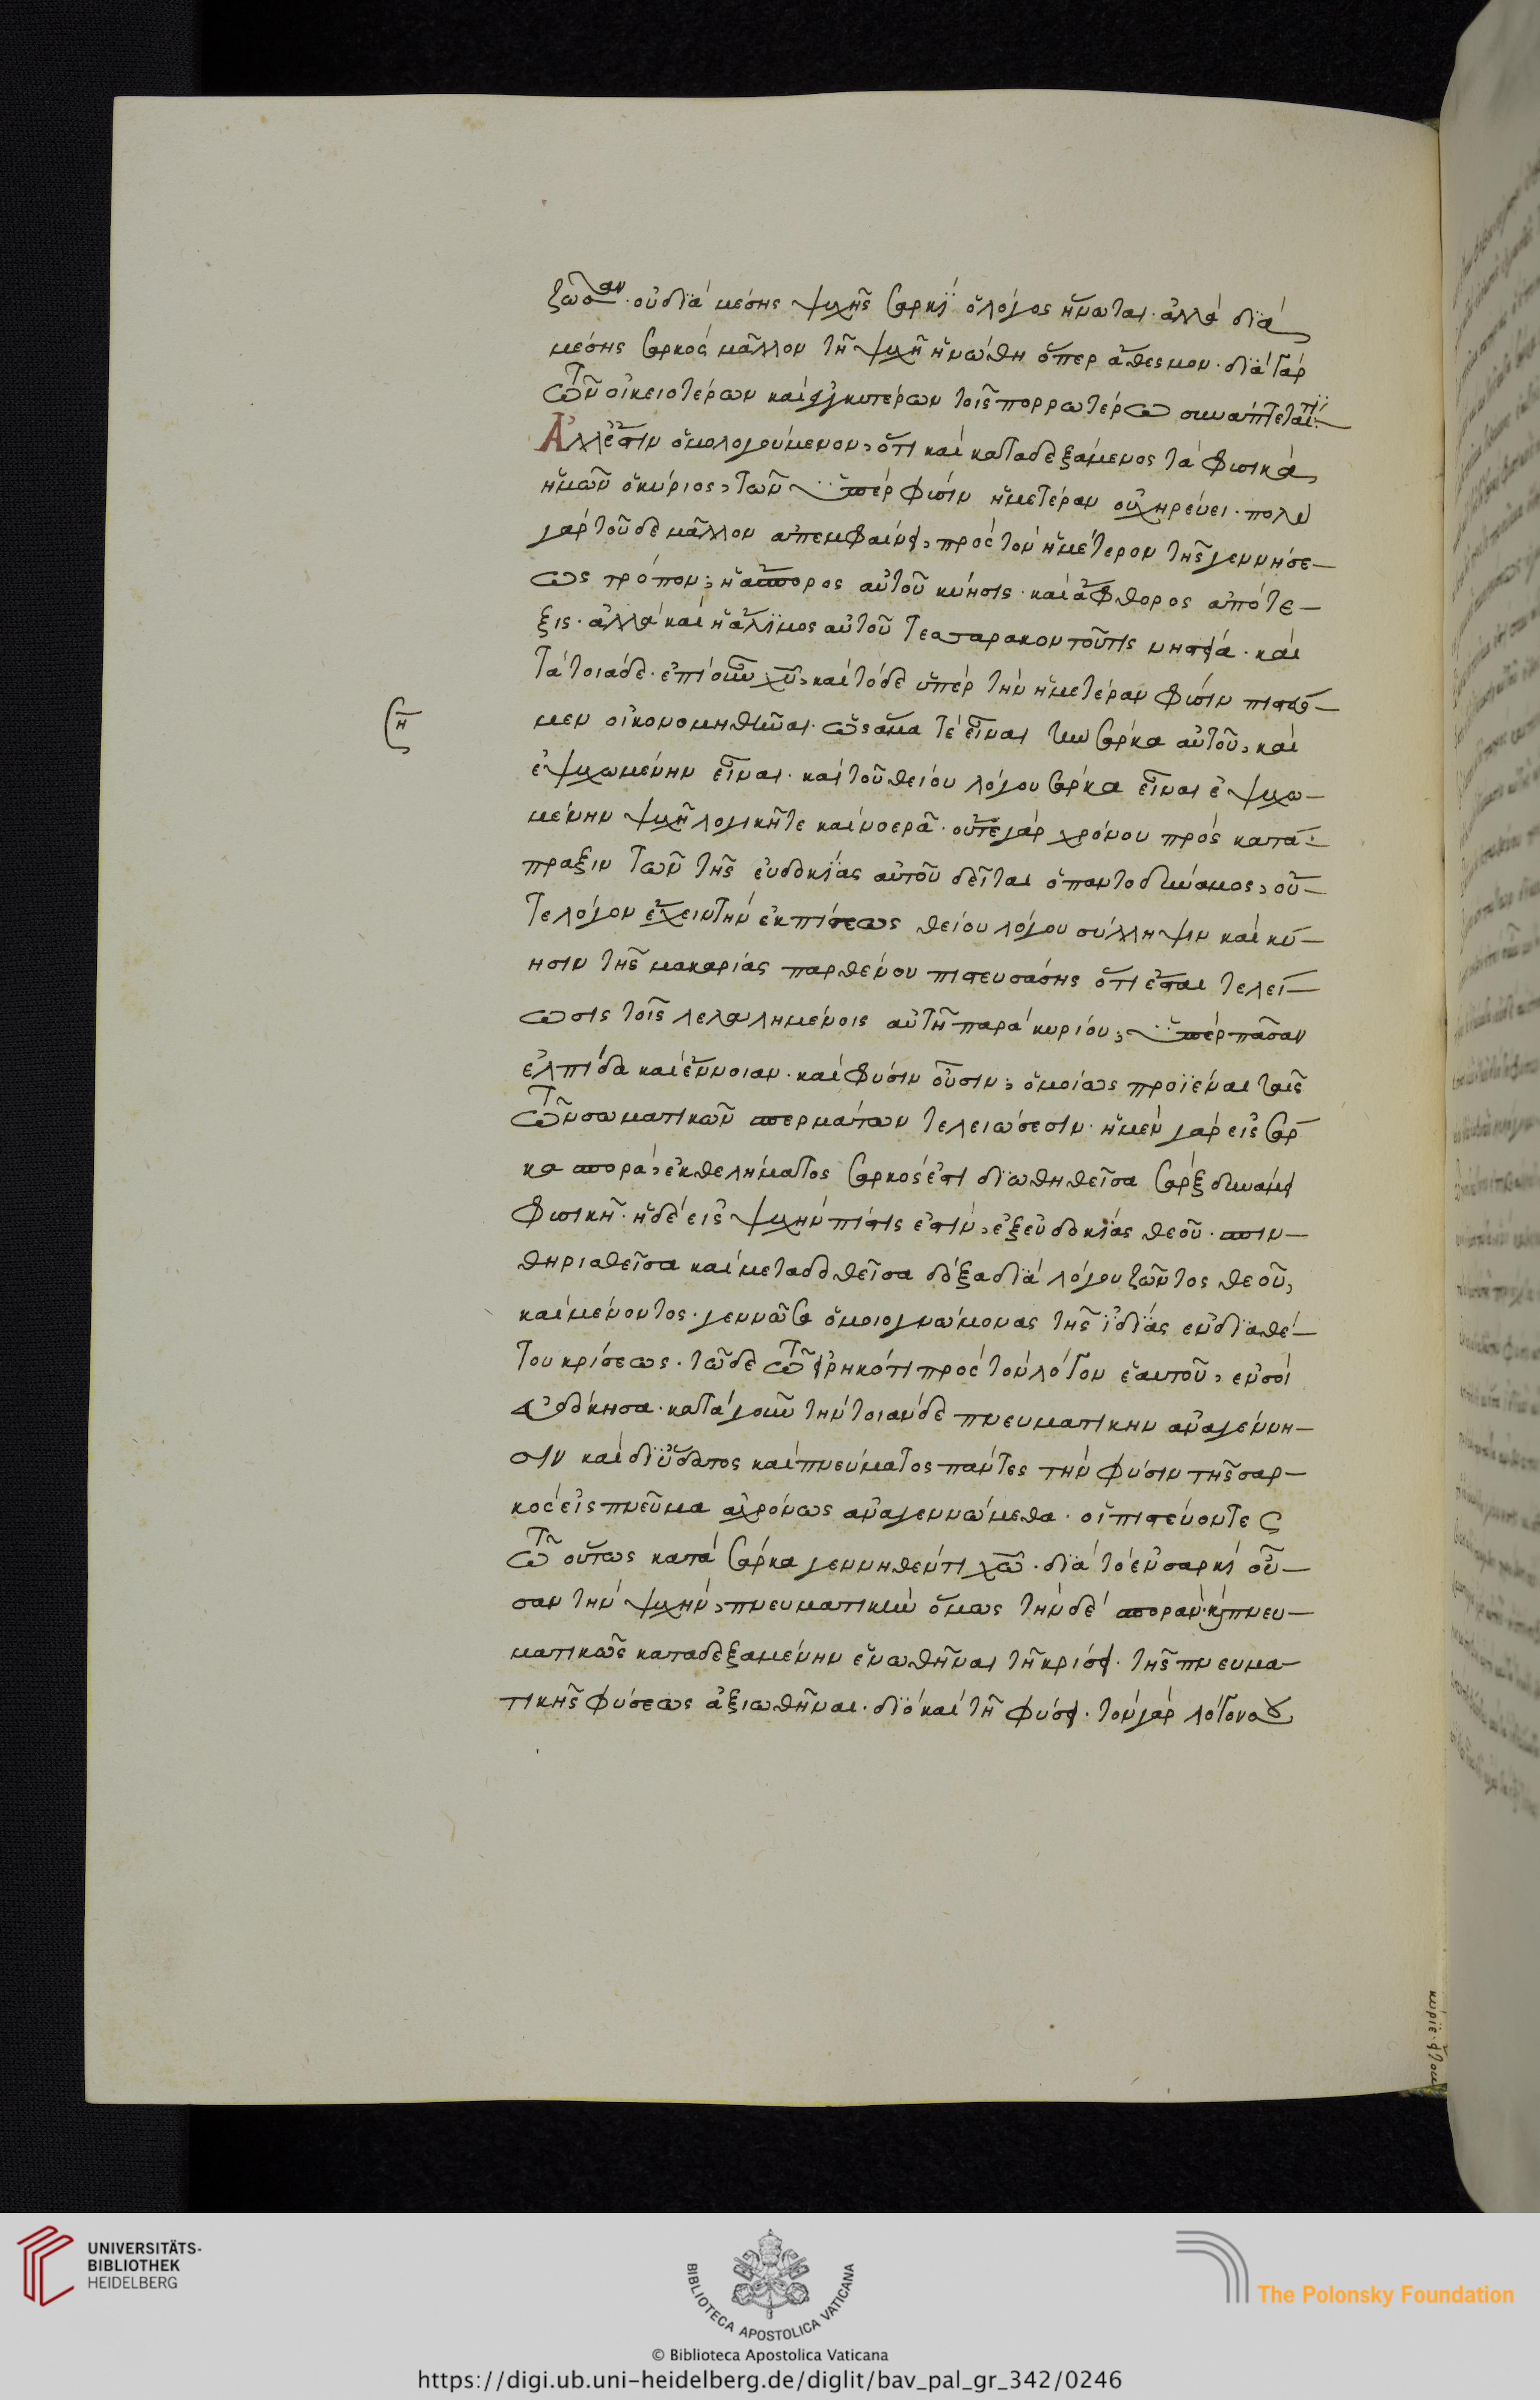 ζῶσαν· οὐ διὰ μέσης ψυχῆς σαρκὶ ὁ λόγος ἥνωται· ἀλλὰ διὰ
μέσης σαρκὸς μᾶλλον τῆ ψυχῆ ἡνώθη ὅπερ ἄθεσμον· διὰ γὰρ
τῶν οἰκειοτέρων καὶ τοῖς πορρωτέρω συνάπτεται
Ἀλλ' ἔστιν ὁμολογούμενον, ὅτι καὶ καταδεξάμενος τὰ φυσικὰ
ἡμῶν ὁ κύριος, τῶν ὑπὲρ φύσιν ἡμετέραν οὐ χηρεύει· πολὺ
γὰρ τοῦδε μᾶλλον ἀπεμφαίνει, πρὸς τὸν ἡμέτερον τῆς γεννήσε–
ως τρόπον, ἡ ἄσπορος αὐτοῦ κύησις· καὶ ἄφθορος ἀπότε–
ξις· ἀλλὰ καὶ ἡ ἄλιμος αὐτοῦ τεσσαρακοντοῦτις νηστεία· καὶ
τὰ τοιάδε· ἐπὶ οὖν χῦ, καὶ τόδε ὑπὲρ τὴν ἡμετέραν φύσιν πιστεύο–
μεν οἰκονομηθῆναι· ὡς ἅμα τὲ εἶναι τὴν σάρκα αὐτοῦ, καὶ
ἐψυχωμένην εἶναι· καὶ τοῦ θείου λόγου σάρκα εἶναι ἐψυχω–
μένην ψυχῆ λογικῆ τε καὶ νοερᾶ· οὔτε γὰρ χρόνου πρὸς κατά–
πραξιν τῶν τῆς εὐδοκίας αὐτοῦ δεῖται ὁ παντοδύναμος, οὔ–
τε λόγον ἔχει τὴν ἐκ πίστεως θείου λόγου σύλληψιν καὶ κύ–
ησιν τῆς μακαρίας παρθένου πιστευσάσης ὅτι ἔσται τελεί–
ωσις τοῖς λελαλημένοις αὐτῆ παρὰ κυρίου, ὑπὲρ πᾶσαν
ἐλπίδα καὶ ἔννοιαν· καὶ φύσιν οὖσιν, ὁμοίως προϊέναι ταῖς
τῶν σωματικῶν σπερμάτων τελειώσεσιν· ἡ μὲν γὰρ εἰς σάρ
κα σπορὰ, ἐκ θελήματος σαρκός ἐστι σὰρξ δυνάμει
φυσικῆ· ἡ δὲ εἰς ψυχὴν πίστις ἐστὶν, ἐξ εὐδοκίας θεοῦ· σπιν–
θηριαθεῖσα καὶ μεταδοθεῖσα δόξα διὰ λόγου ζῶντος θεοῦ,
καὶ μένοντος· γεννῶσα ὁμοιογνώμονας τῆς ἰδίας ἐνδιαθέ–
του κρίσεως· τῶδε τῶ εἰρηκότι πρὸς τὸν λόγον ἑαυτοῦ, ἐν σοὶ
εὐδόκησα· κατὰ γοῦν τὴν τοιάνδε πνευματικὴν ἀναγέννη–
σιν καὶ δι' ὕδατος καὶ πνεύματος πάντες τὴν φύσιν τῆς σαρ–
κὸς εἰς πνεῦμα ἀχρόνως ἀναγεννώμεθα· οἱ πιστεύοντες
τῶ οὕτως κατὰ σάρκα γεννηθέντι χῶ· διὰ τὸ ἐν σαρκὶ οὖ–
σαν τὴν ψυχὴν, πνευματικὴν ὅμως τήνδε σπορὰν κ πνευ–
ματικῶς καταδεξαμένην ἑνωθῆναι τῆ κρίσει· τῆς πνευμα–
τικῆς φύσεως ἀξιωθῆναι· διὸ καὶ τῆ φύσει· τὸν γὰρ λόγον
UNIVERSITÄTS-
BIBLIOTHEK
HEIDELBERG
BIBLIOTECA APOSTOLICA VATICANA
The Polonsky Foundation
© Biblioteca Apostolica Vaticana
https://digi.ub.uni-heidelberg.de/diglit/bav_pal_gr_342/0246